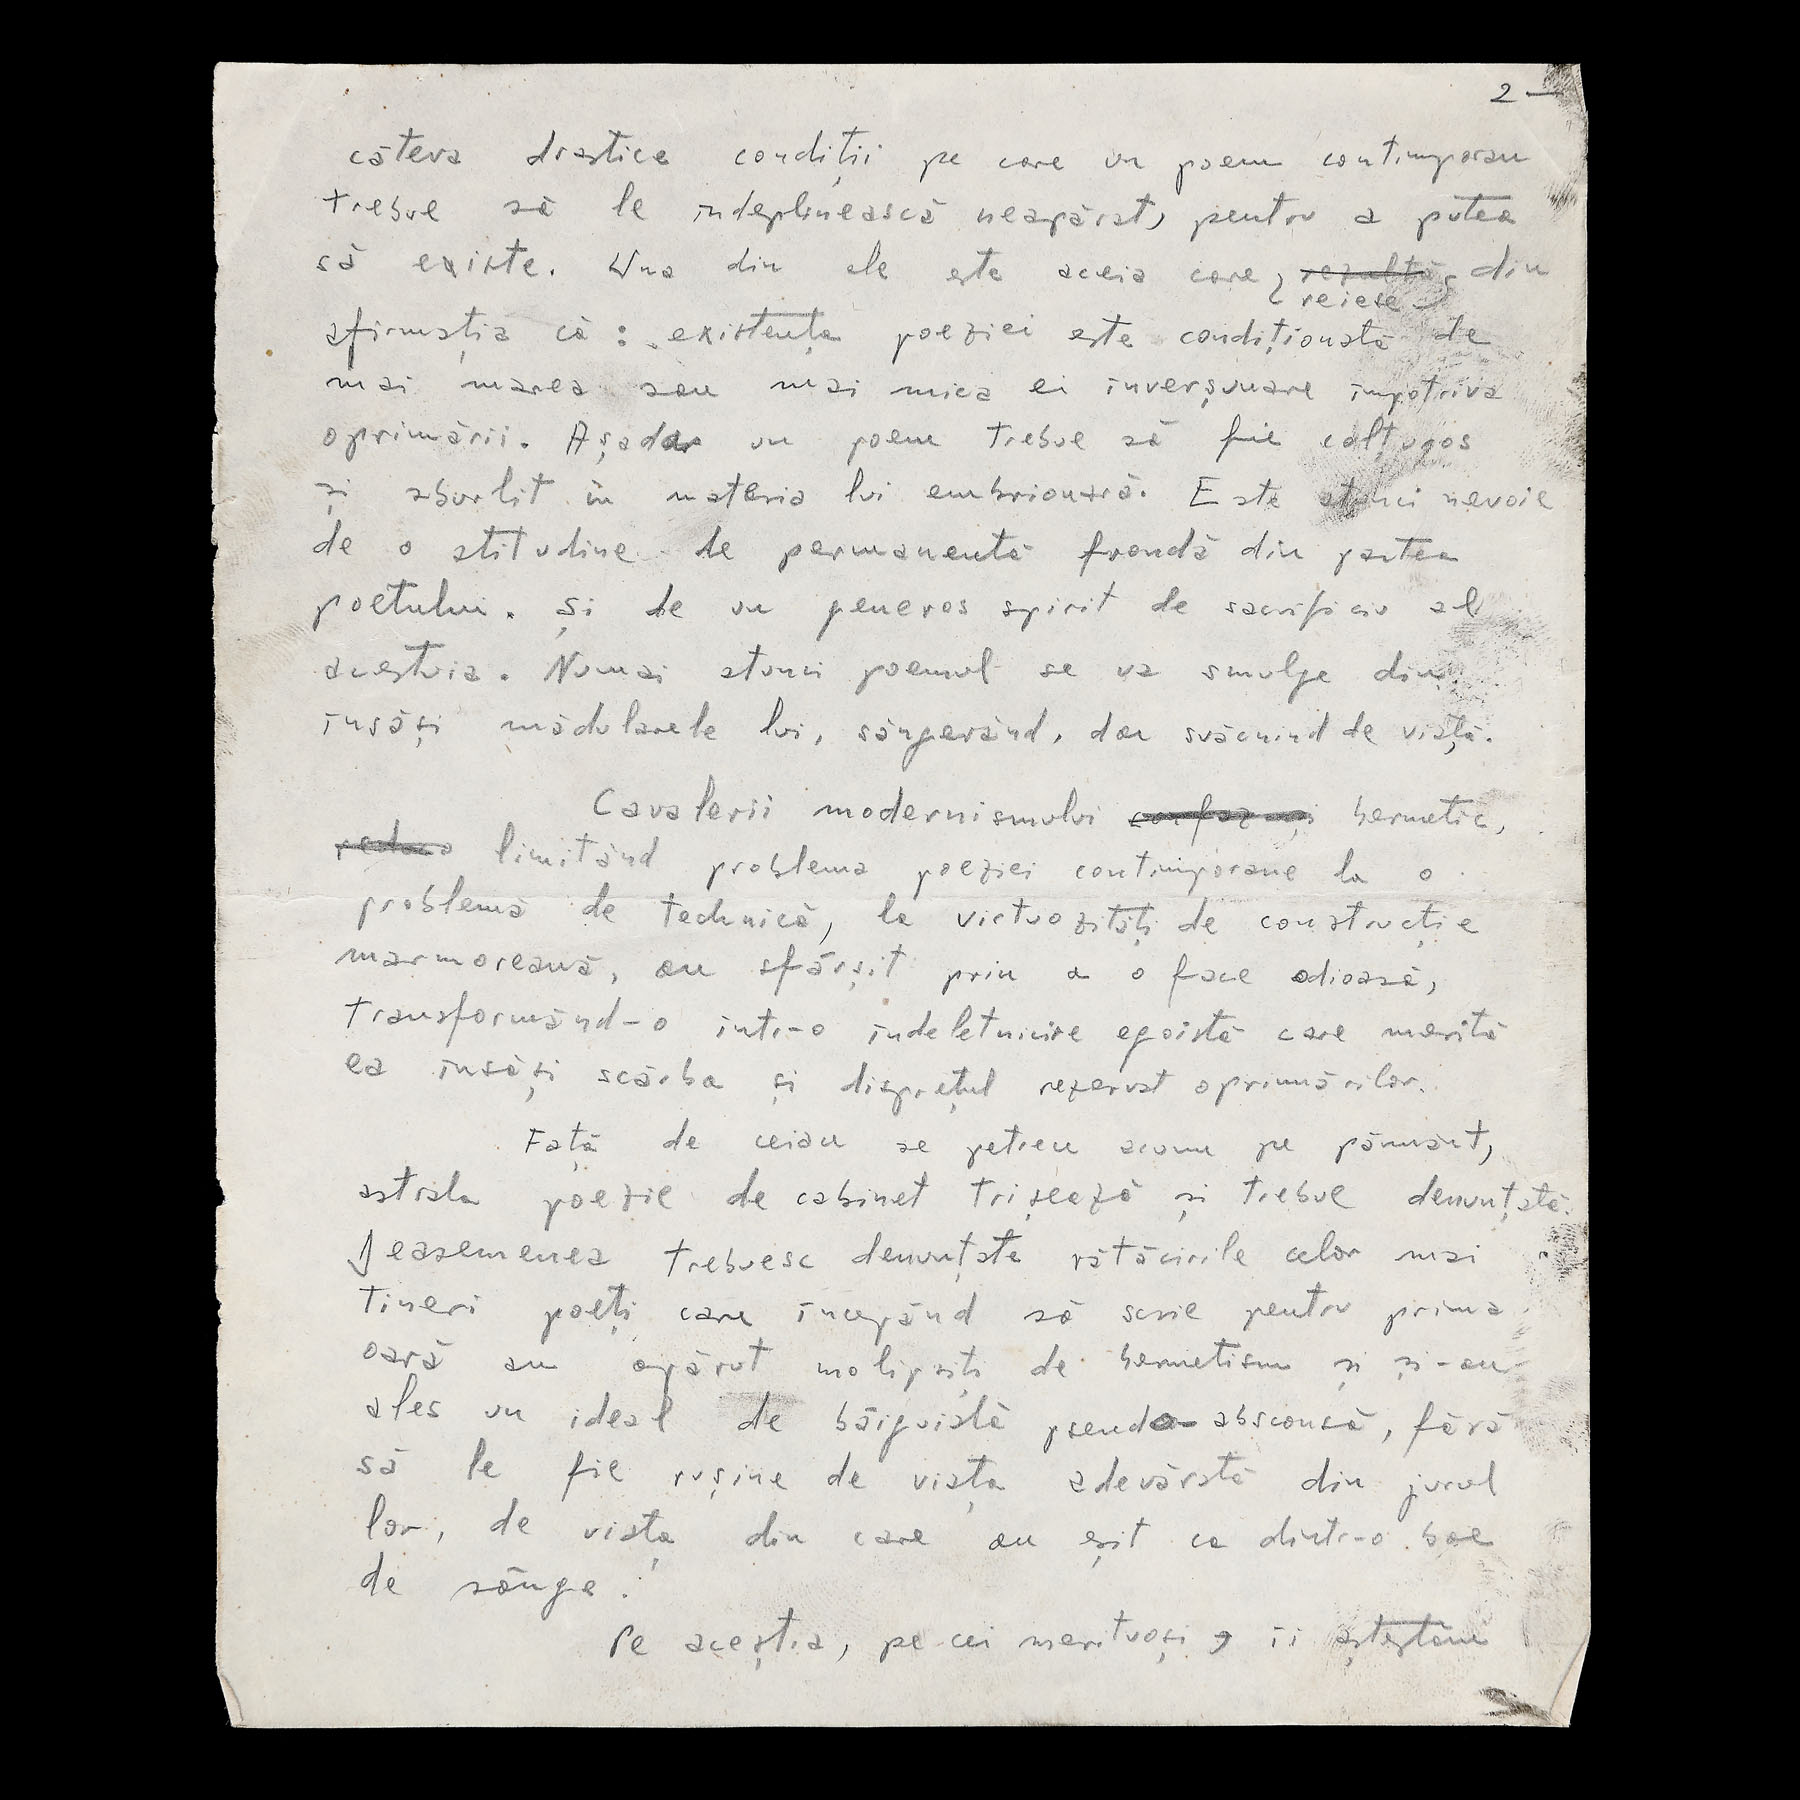 2 —
câteva drastice condiții pe care un poem contimporan
trebue să le indeplinească neapărat, pentru a putea
să existe. Una din ele este aceia care rezultă din
reiese
afirmația că : existența poeziei este condiționată de
mai marea sau mai mica ei inverșunare impotriva
oprimării. Așadar un poem trebue să fie colțuros
și sburlit în materia lui embrionară. Este atunci nevoie
de o atitudine de permanentă frondă din partea
poetului. Și de un generos spirit de sacrificiu al
acestuia. Numai atunci poemul se va smulge din
însăși mădularele lui, sângerând, dar svâcnind de viață.
Cavalerii modernismului hermetic,
limitând problema poeziei contimporane la o
problemă de technică, la virtuozități de construcție
marmoreană, au sfârșit prin a o face odioasă,
transformând-o intr-o indeletnicire egoistă care merită
ea însăși scârba și disprețul rezervat oprimărilor.
Față de ceiace se petrece acum pe pământ,
astrala poezie de cabinet trișează și trebue denunțată.
Deasemenea trebuesc denunțate rătăcirile celor mai
tineri poeți care începând să scrie pentru prima
oară au apărut molipsiți de hermetism și și-au
ales un ideal de bâiguială pseudo-absconsă, fără
să le fie rușine de viața adevărată din jurul
lor, de viața din care au eșit ca dintr-o bae
de sânge.
Pe aceștia, pe cei merituoși, îi așteptăm